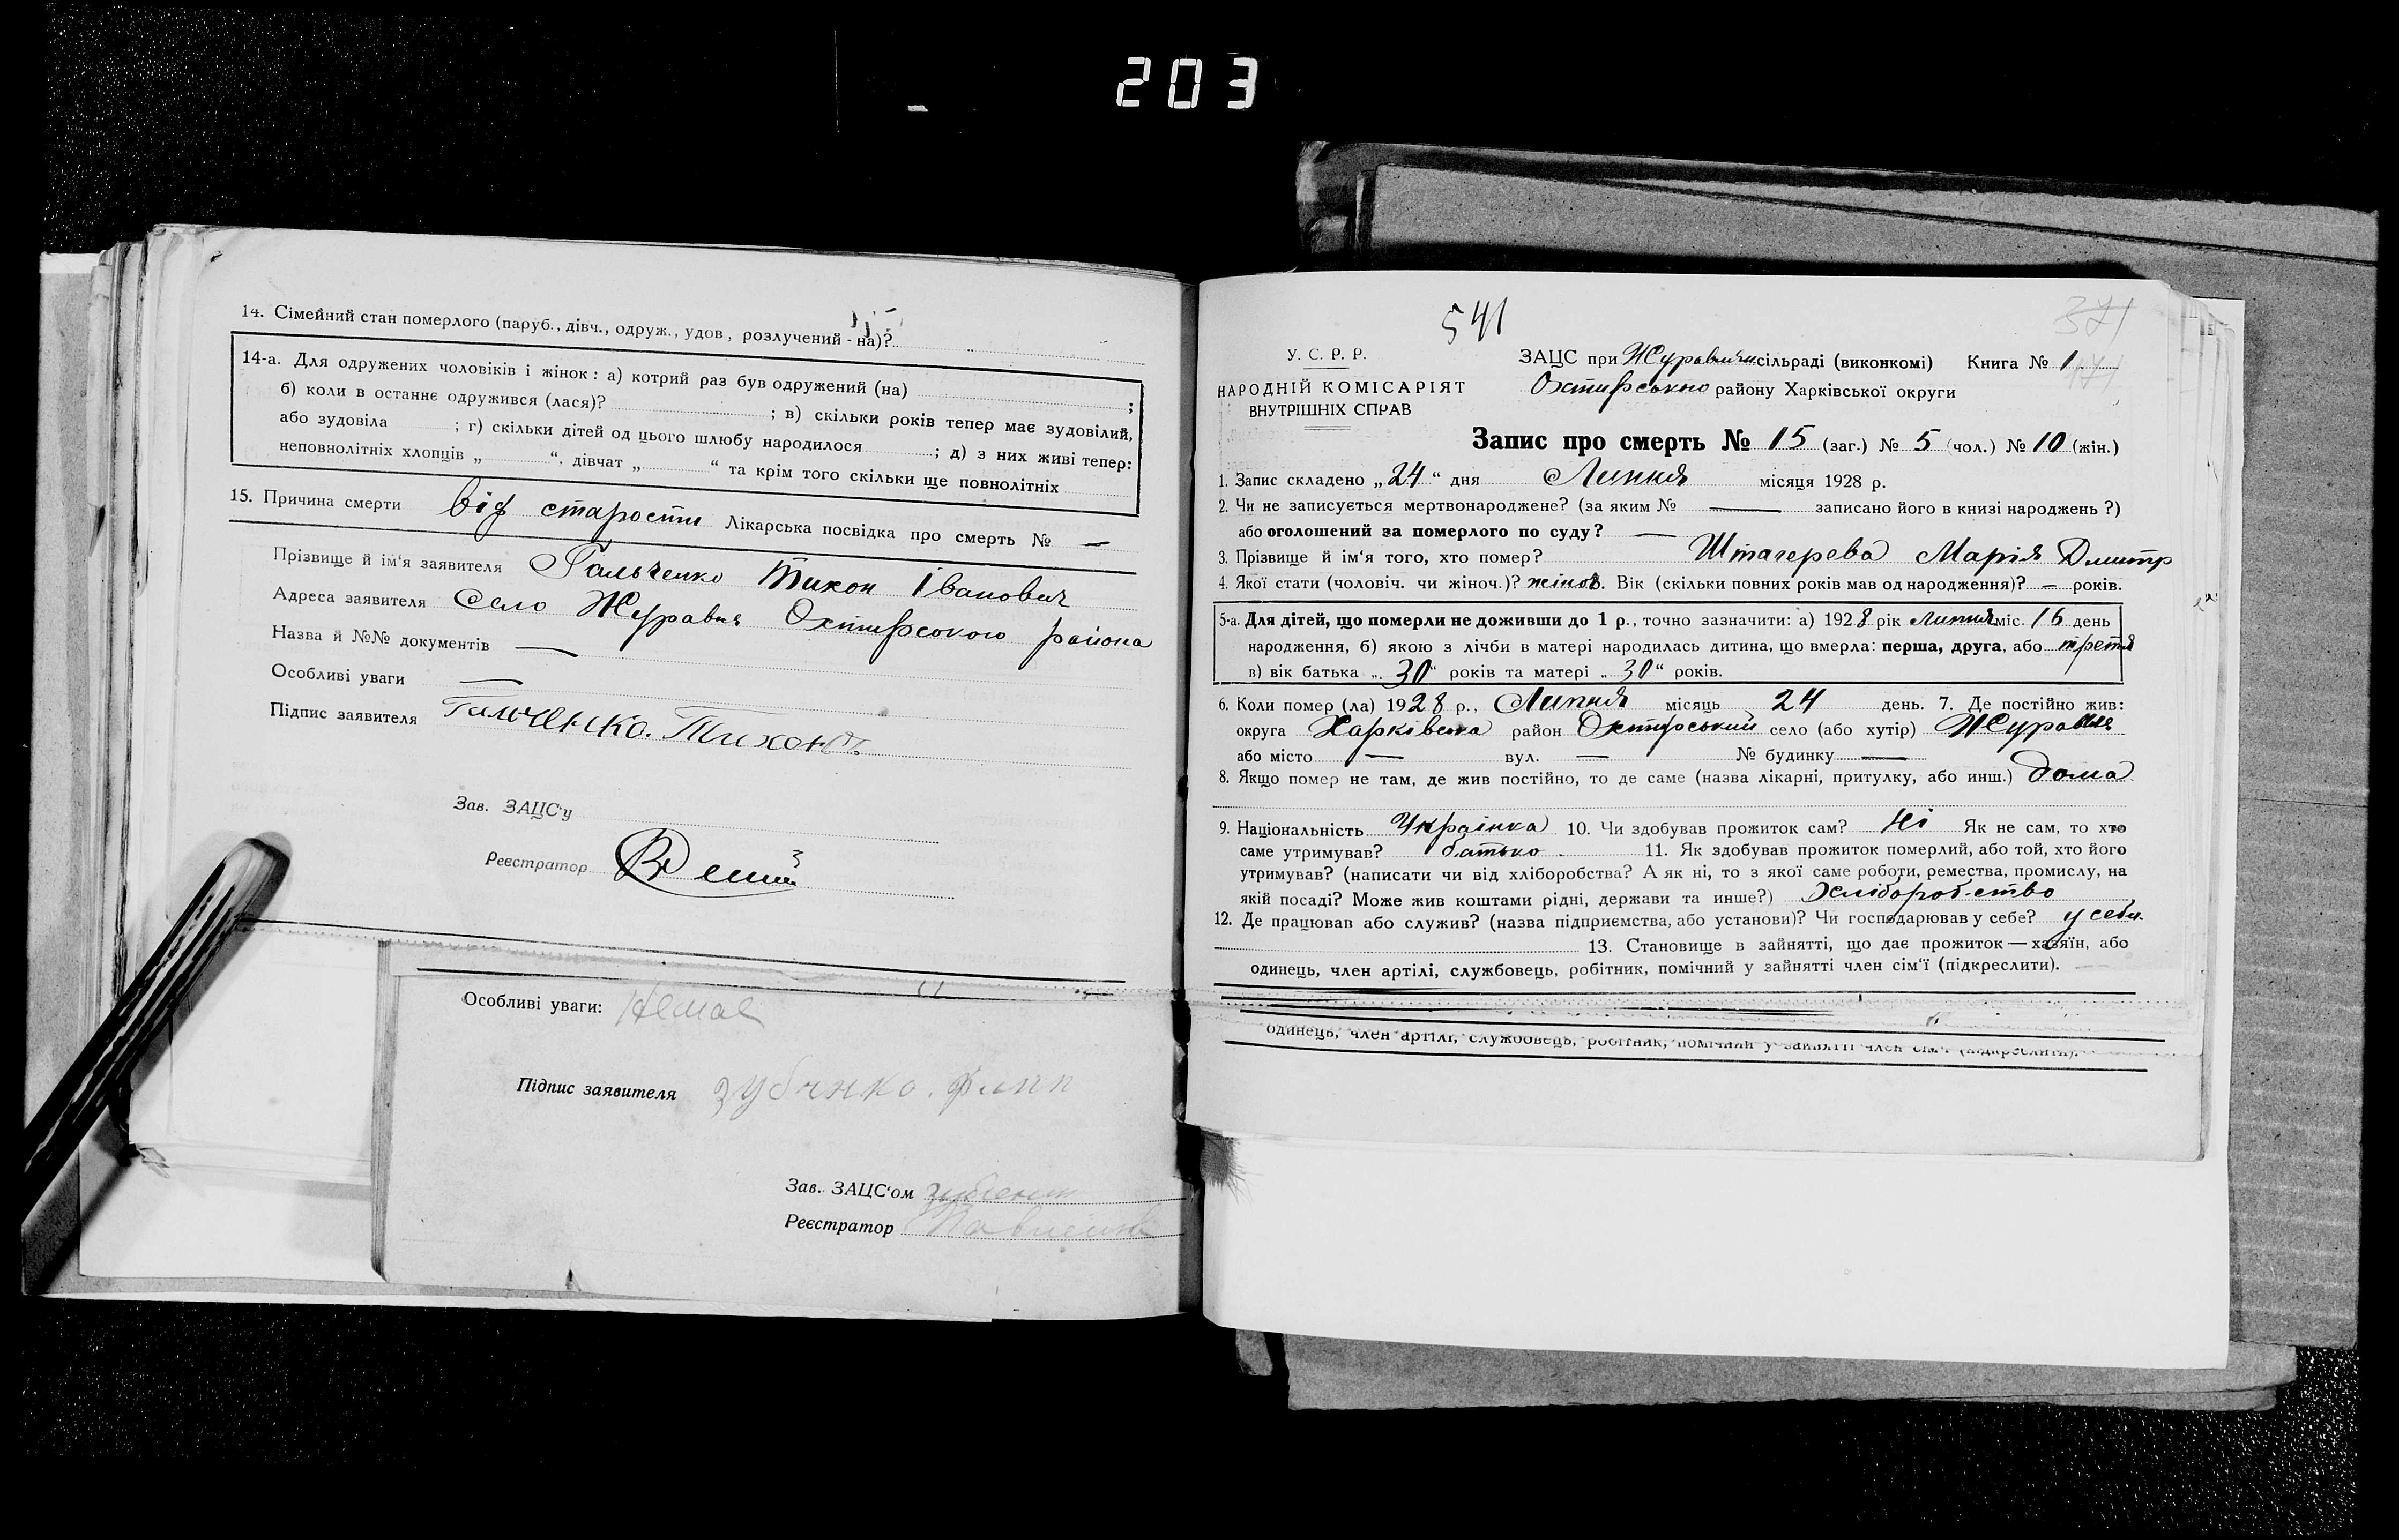 203
14. Сімейний стан померлого (паруб., дівч., одруж., удов, розлучений-на)?
14-а. Для одружених чоловіків і жінок: а) котрий раз був одружений (на) ;
б) коли в останнє одружився (лася)? ; в) скільки років тепер має зудовілий,
або зудовіла ; г) скільки дітей од цього шлюбу народилося ; д) з них живі тепер:
неповнолітніх хлопців „ “, дівчат „ “ та крім того скільки ще повнолітніх
15. Причина смерти від старости Лікарська посвідка про смерть № —
Прізвище й ім‘я заявителя Гальченко Тихон Іванович
Адреса заявителя Село Журавне Охтирського района
Назва й №№ документів —
Особливі уваги —
Підпис заявителя Гальченко. Тихонъ
Зав. ЗАЦС‘у
Реєстратор
Особливі уваги: Немає
Підпис заявителя
Зав. ЗАЦС‘ом
Реєстратор
541
371
171
У. С. Р. Р.
НАРОДНІЙ КОМІСАРІЯТ
ВНУТРІШНІХ СПРАВ
ЗАЦС при Журавнинсільраді (виконкомі) Книга № 1
Охтирського району Харківської округи
Запис про смерть № 15 (заг.) № 5 (чол.) № 10 (жін.)
1. Запис складено „24“ дня Липня місяця 1928 р.
2. Чи не записується мертвонароджене? (за яким № — записано його в книзі народжень ?)
або оголошений за померлого по суду? —
3. Прізвище й ім‘я того, хто помер? Штагерева Марія Дмитр
4. Якої стати (чоловіч. чи жіноч.)? жінов. Вік (скільки повних років мав од народження)? — років.
5-а. Для дітей, що померли не доживши до 1 р., точно зазначити: а) 1928 рік Липня міс. 16 день
народження, б) якою з лічби в матері народилась дитина, що вмерла: перша, друга, або третя
в) вік батька „ 30“ років та матері „ 30“ років.
6. Коли помер (ла) 1928 р., Липня місяць 24 день. 7. Де постійно жив:
округа Харківська район Охтирський село (або хутір) Журавне
або місто — вул. — № будинку —
8. Якщо помер не там, де жив постійно, то де саме (назва лікарні, притулку, або инш.) дома
9. Національність Українка 10. Чи здобував прожиток сам? Ні Як не сам, то хто
саме утримував? батько 11. Як здобував прожиток померлий, або той, хто його
утримував? (написати чи від хліборобства? А як ні, то з якої саме роботи, ремества, промислу, на
якій посаді? Може жив коштами рідні, держави та инше?) Хлібороб-ство
12. Де працював або служив? (назва підприємства, або установи)? Чи господарював у себе? у себе
13. Становище в зайнятті, що дає прожиток — хазяїн, або
одинець, член артілі, службовець, робітник, помічний у зайнятті член сім‘ї (підкреслити).
одинець, член артілі, службовець, робітник, помічний у зайнятті член сім‘ї (підкреслити).